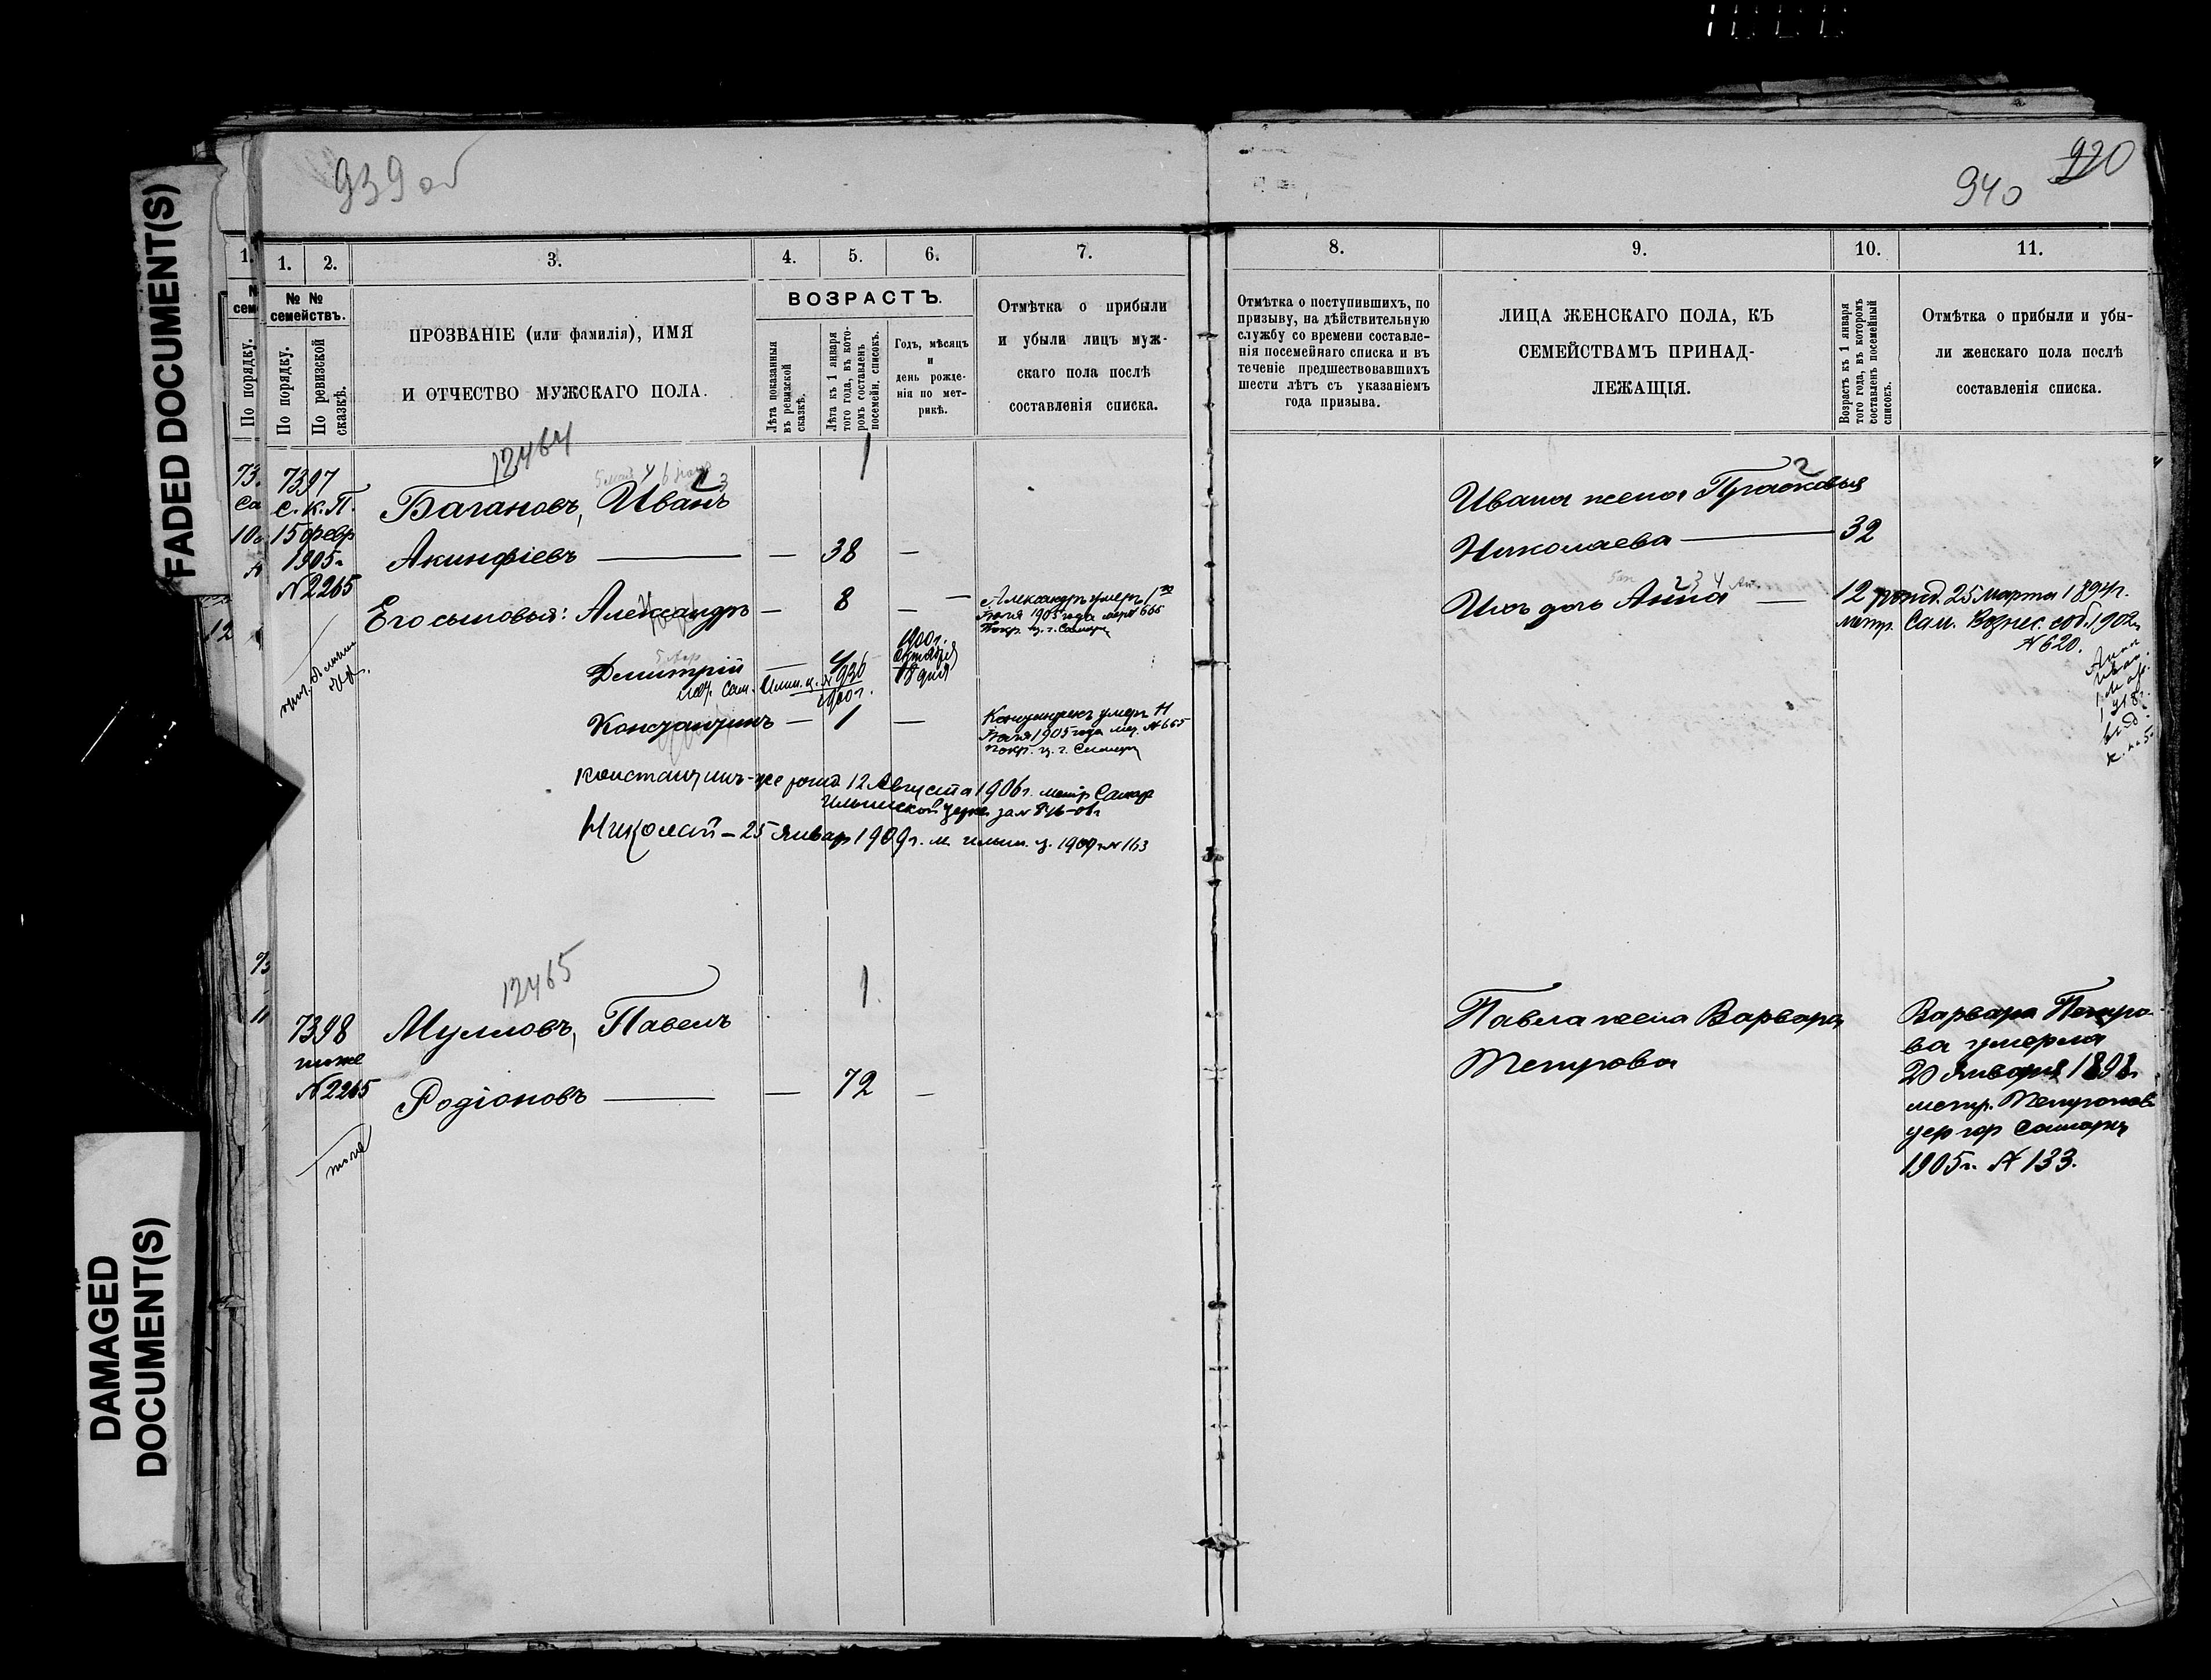 FADED DOCUMENT(S)
DAMAGED
DOCUMENT(S)
939 об
1.
2.
3.
4.
5.
6.
7.
№ №
семействъ.
По порядку.
По ревизской
сказкѣ.
ПРОЗВАНІЕ (или фамилія), ИМЯ
И ОТЧЕСТВО МУЖСКАГО ПОЛА.
ВОЗРАСТЪ.
Лѣта показанныя
въ ревизской
сказкѣ.
Лѣта къ 1 января
того года, въ кото-
ромъ составленъ
посемейн. списокъ.
Годъ, мѣсяцъ
и
день рожде-
нія по мет-
рикѣ.
Отмѣтка о прибыли
и убыли лицъ муж-
скаго пола послѣ
составленія списка.
12464
1
7397
С. К. П.
15 февр
1905 г.
№ 2265
Багановъ, Иванъ
Акинфіевъ — — 38 —
Его сыновья: Александръ — 8 —
Александръ умеръ 1го
Іюля 1905 года метр № 666
Покр. ц. г. Самары
Дмитрій — 4
1900 г.
Октября
18 дня
метр. Сам. Ильин. ц. № 936
1900 г.
Константинъ — 1 —
Константинъ умеръ 11
Іюля 1905 года мет. № 665
покр. ц. г. Самары
Константинъ-же рожд 12 Августа 1906 г. метр Самар
Ильинской церк за № 846-06 г
Николай - 25 Январ 1909 г. м. ильин. ц. 1909 г № 163
12465
1.
7398
тоже
№ 2265
тоже
Мулловъ, Павелъ
Родіоновъ — — 72 —
940
920
8.
9.
10.
11.
Отмѣтка о поступившихъ, по
призыву, на дѣйствительную
службу со времени составле-
нія посемейнаго списка и въ
теченіе предшествовавшихъ
шести лѣтъ съ указаніемъ
года призыва.
ЛИЦА ЖЕНСКАГО ПОЛА, КЪ
СЕМЕЙСТВАМЪ ПРИНАД-
ЛЕЖАЩІЯ.
Возрастъ къ 1 января
того года, въ которомъ
составленъ посемейный
списокъ.
Отмѣтка о прибыли и убы-
ли женскаго пола послѣ
составленія списка.
Ивана жена Прасковья
Николаева — 32
Ихъ дочь Анна — 12
рожд. 25 Марта 1894 г.
метр. Сам. Вознес. соб. 1902 г.
№ 620.
Павла жена Варвара
Петрова
Варвара Петро-
ва умерла
20 Января 1898 г.
метр. Петропав.
цер гор Самары
1905 г. № 133.